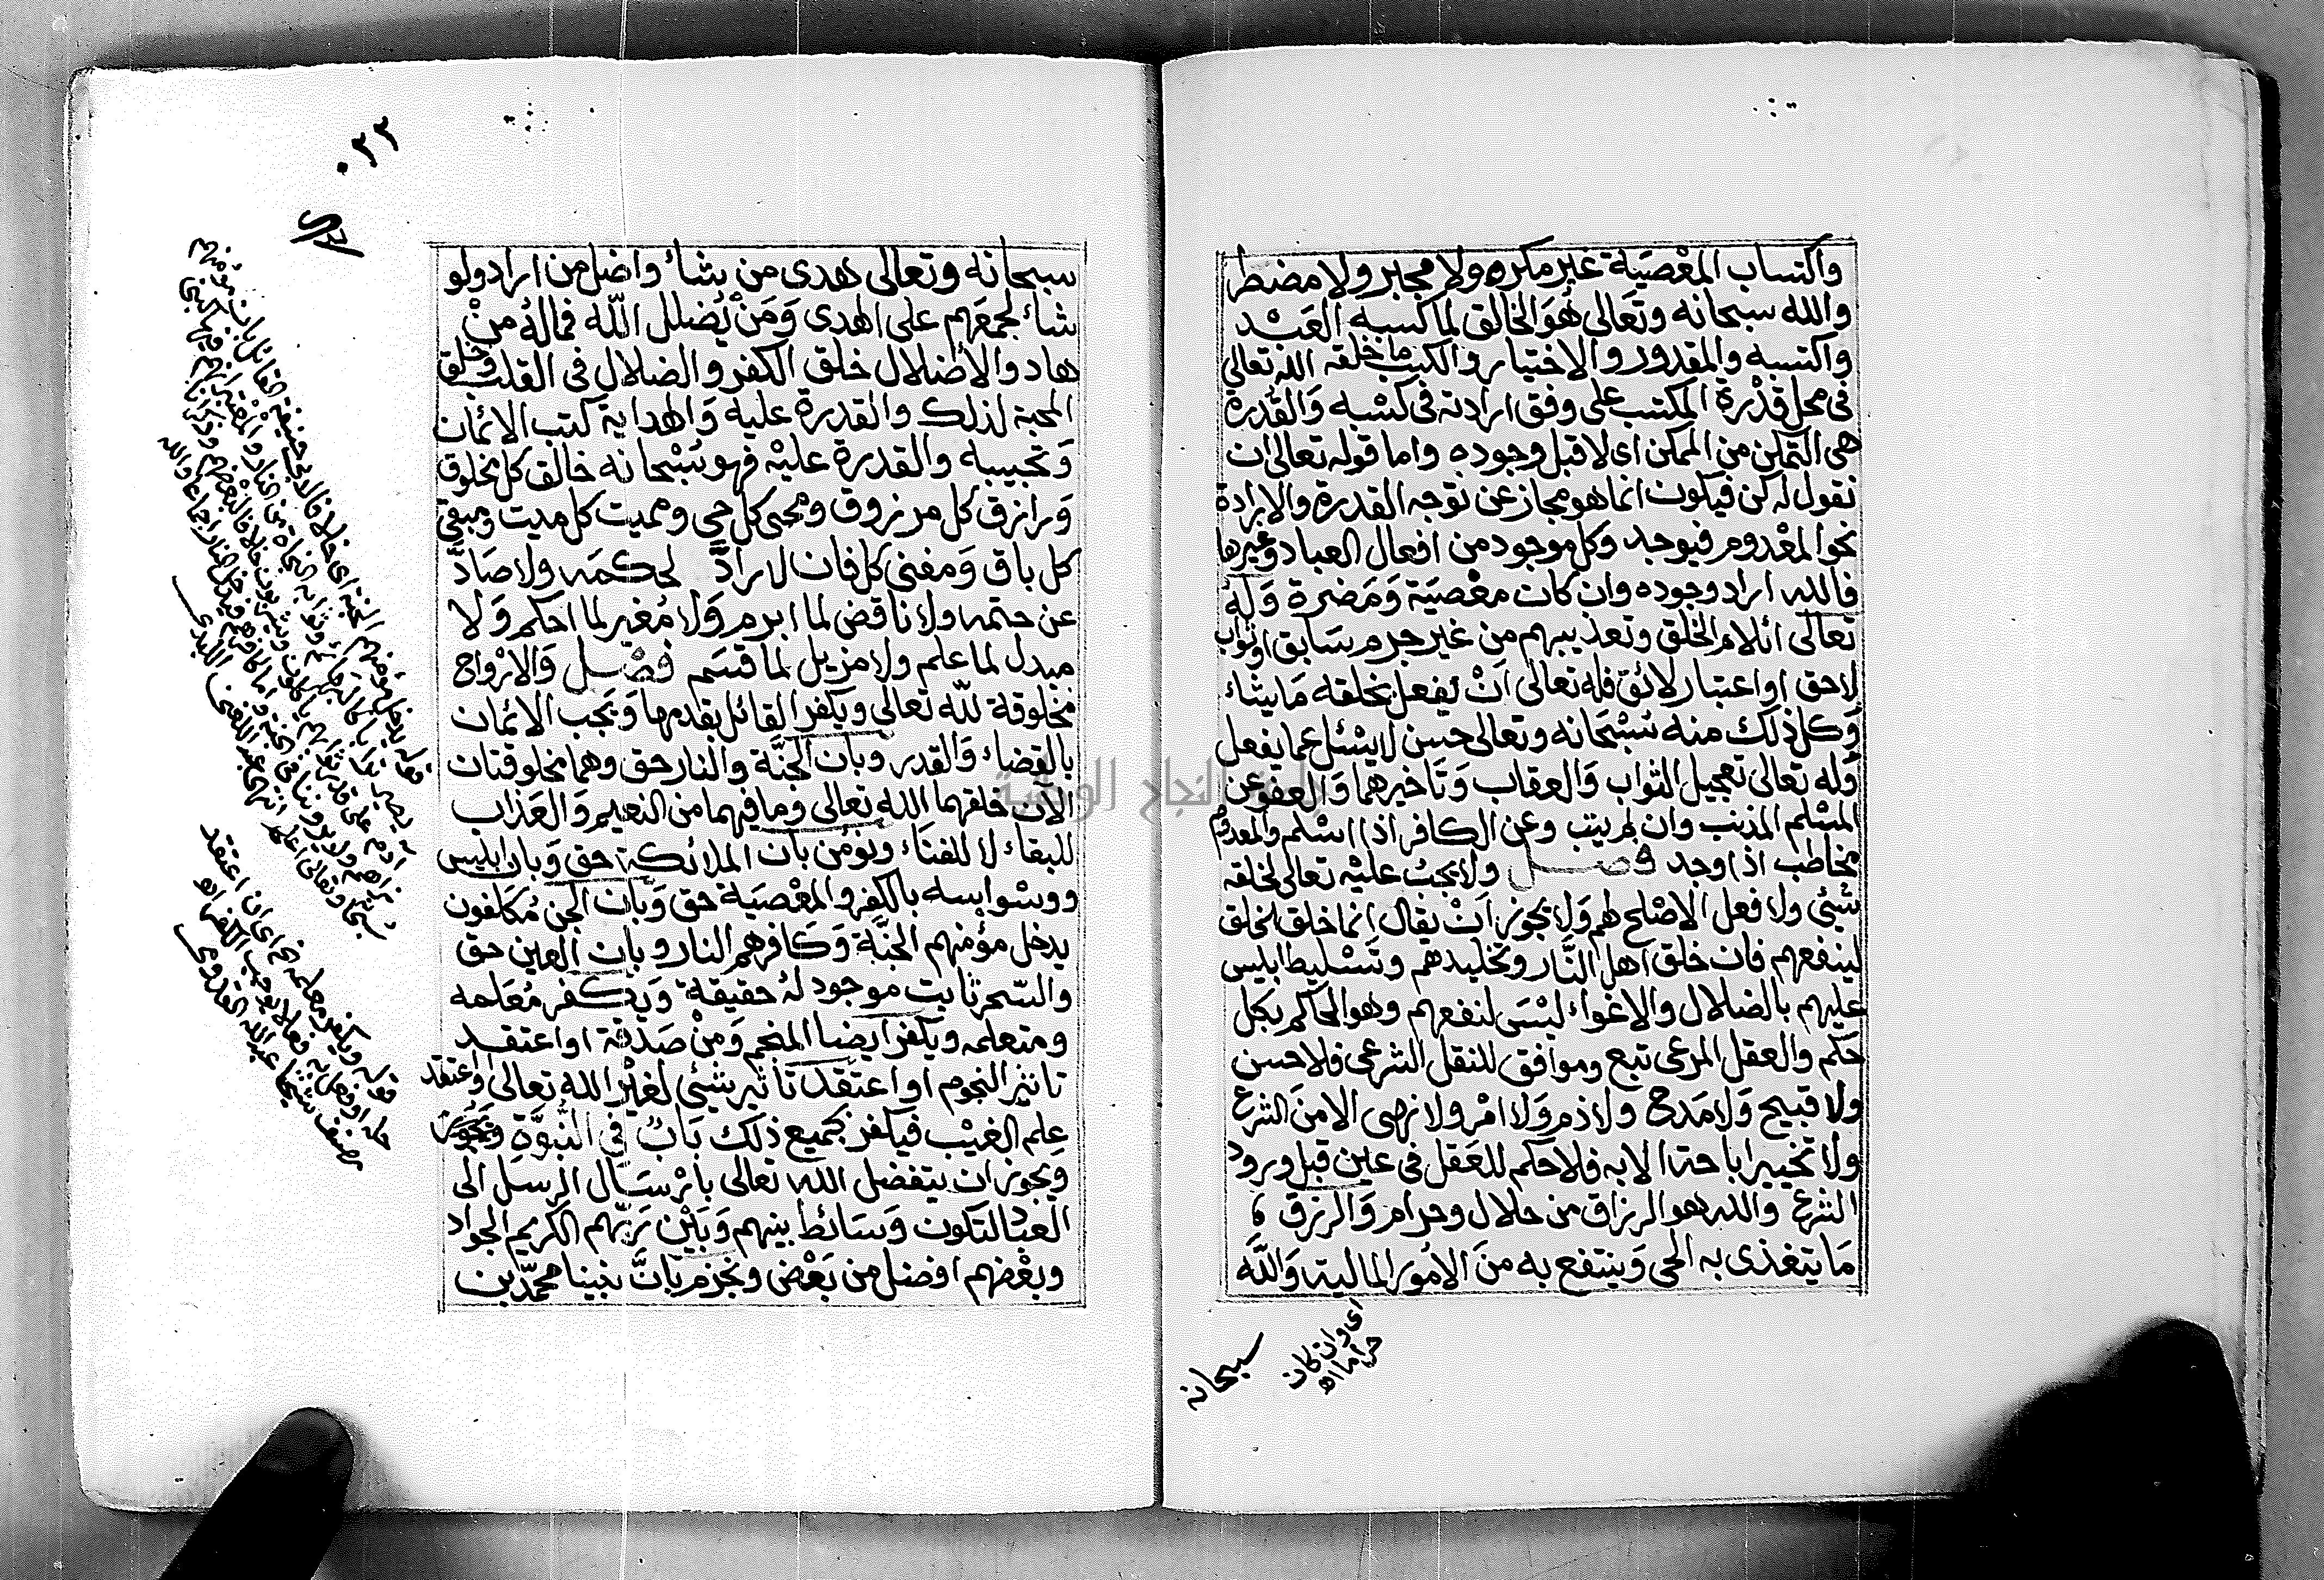 واكتساب المعْصيَة غير مكره ولا مجبر ولا مضطر
والله سبحانه وتعَالى هُوَ الخالق لما كسبه العَبْد
واكتسبه والمقدور والاختيار والكسب ما خلقه الله تعالى
فى محل قدْرة المكتسب على وفق ارادته فى كسْبه وَالقُدرة
هى التمكن من الممكن اى لا قبل وجوده واما قوله تعالى ان
نقول له كن فيكون انما هو مجاز عن توجه القدرة والارادة
نحو المعْدوم فيوجد وكل موجود من افعال العباد وغيرها
فالله اراد وجوده وان كات معْصيَة وَمَضرة وَلهُ
تعالى ائلام الخلق وتعذيبهم من غير جرم سَابق او ثواب
لاحق او اعتبار لائق فله تعالى اَنْ يفعل بخلقه مَا يشاء
وَكل ذلك منه سُبْحَانه وتعالى حسن لا يسْئل عما يفعل
وَله تعالى تعجيل الثواب وَالعقاب وتَاخيرهما وَالعفو عن
المسْلم المذنب وان لم يتب وعن الكافر اذا اسْلم والمعدوم
مخاطب اذا وجد فصل ولا يجبُ عليْه تعالى لخلقه
شئي ولا فعل الاصْلح لهم وَلا يجوز اَنْ يقال انما خلق الخلق
لينفعهم فان خلق اهل النَّار وتخليدهم وتَسْليط ابليس
عليهم بالضلال والاغواء ليْسَ لنفعهم وهو الحاكم بكل
حَكم والعقل المرعى تبع وموافق للنقل الشرعى فلا حسن
ولا قبيح وَلا مَدح ولا ذم وَلا امْر ولا نهى الا منَ الشرع
ولا تخيير اباحة الا به فلا حكم للعَقل فى عين قبل ورود
الشرع والله هو الرزاق من حلال وحرام وَالرزق
مَا يتغذى به الحى وَينتفع به منَ الأمور المالية وَاللَّه
اى وان كان
حراما اه
سبحانه
٠٢٢
سبحانه وتعالى هدى من يشاء واضل من اراد ولو
شاء لجمعَهم على الهدى وَمَنْ يُضلل اللّه فمالهُ منْ
هاد والأضلال خلق الكفر والضلال فى القلب وخلق
المحبة لذلك والقدرة عليه وَالهداية كتب الائمان
وَتحبيبه والقدرة عليْه فهو سُبْحانه خالق كل مخلوق
وَرازق كل مرزوق ومحى كل حى ومميت كل ميت ومبقى
كل باق وَمفنى كل فان لا رادَّ لحكمه ولا صَادَّ
عن حتمه ولا ناقض لما ابرم وَلا مُغير لما احكم وَلا
مبدل لما علم ولا مزيل لما قسَم فصْل وَالارْواح
مخلوقة للّه تعالى ويكفر القائل بقدمها وَيجب الائمان
بالقضاء وَالقدر وبان الجنَّة والنار حق وهما مخلوقتان
الان خلقهما الله تعالى وما فيهما من النعيم وَالعَذاب
للبقاء لا للفناء ونؤمن بان الملائكة حق وَبان ابليس
ووسْوايسه بالكفر والمعْصيَة حق وَبان الجن مُكلفون
يدخل مؤمنهم الجنَّة وَكَافرهم النار وبان العين حق
والسّحر ثابت موجود لهُ حقيقة وَيكفر مُعَلمه
ومتعلمه ويكفر ايضا المنجم وَمنْ صَدقه او اعتقد
تاثير النجوم او اعتقد تأثير شئي لغيْر الله تعالى واعتقد
علم الغيْب فيكفر بجميع ذلك بَابٌ فى النُّبوَّة
ويجوز ان يتفضل الله تعالى بارْسَال الرسل الى
العباد لتكون وَسَائط بينهم وَبَيْن رَبّهم الكريم الجواد
وبعْضهم افضل من بَعْض ونجزم بَانَّ نبينا محمّد بن
قوله يدخل مؤمنهم الجنة اى خلافا لابى حنيفة القائل بان مؤمنهم
قوله ويكفر معلمه الخ اى ان اعتقد
حله او فعل به فعلا يوجب الكفر اه
مصنف شيخنا عبد الله القدومى
جامعة النجاح الوطنية